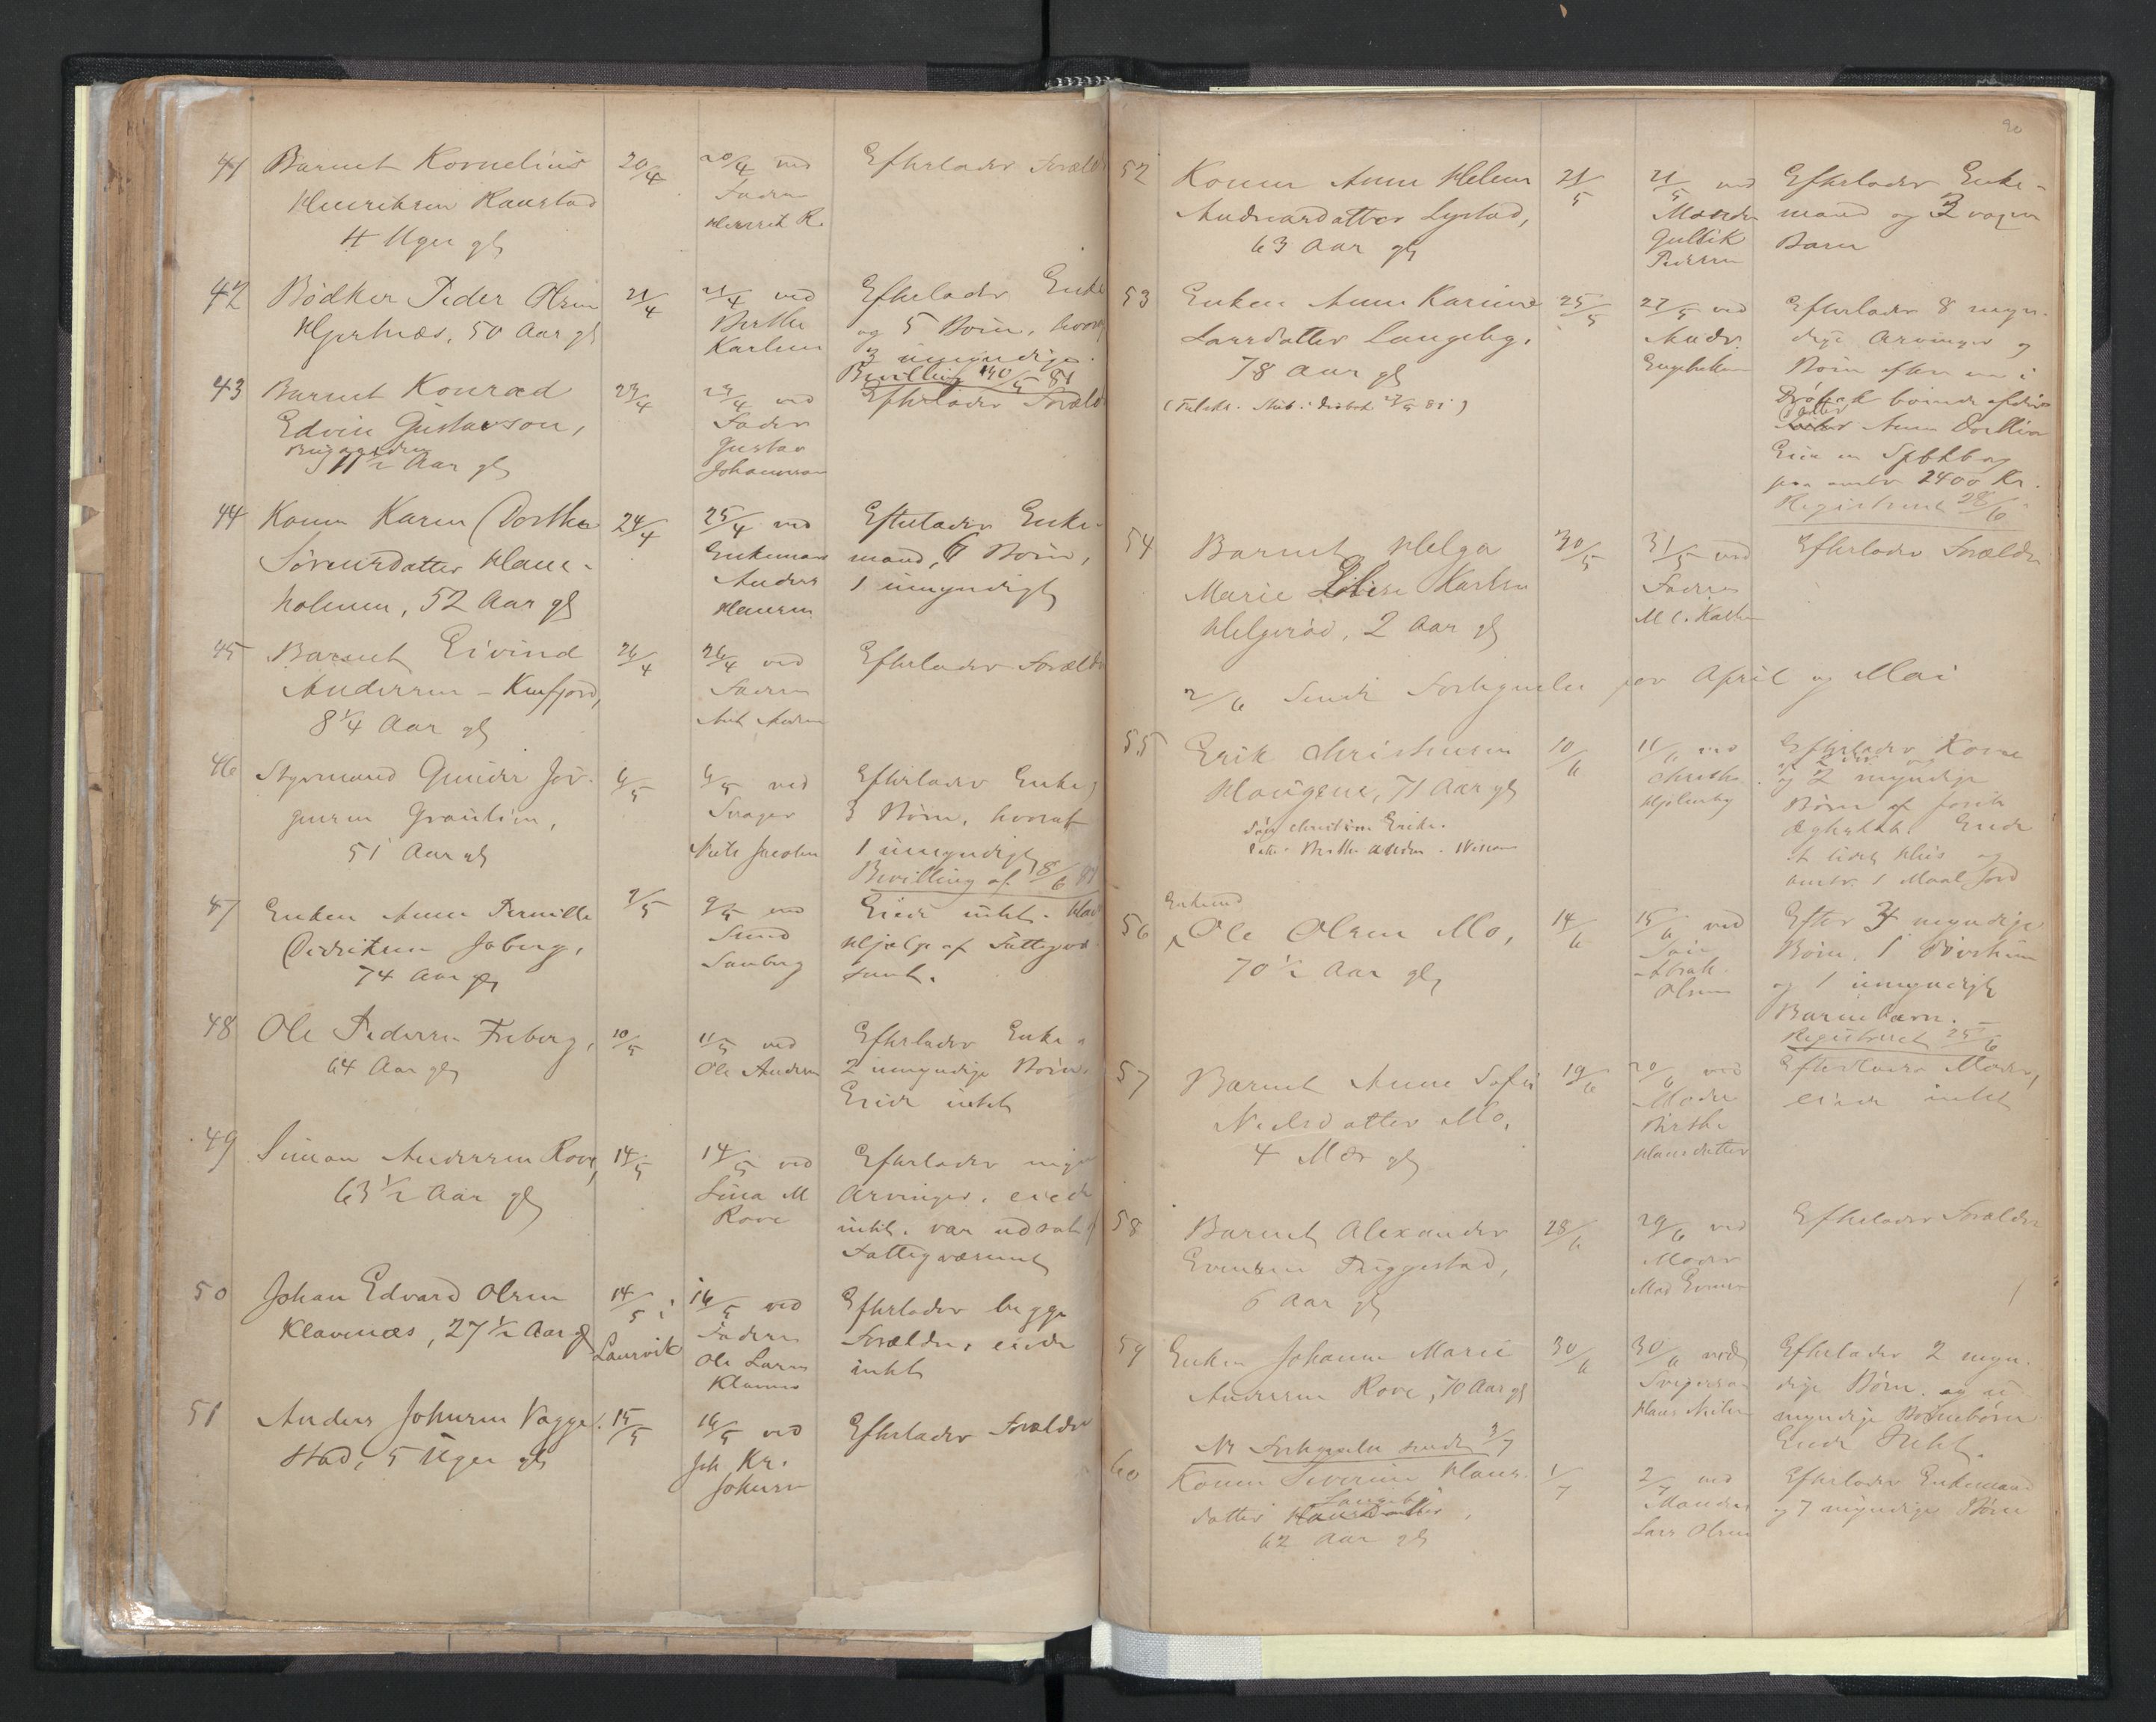 41 Barnet Kornelius 20/4 20/4 ved Efterlader Foræld
Henriksen Raustad Faderen
4 Uger gl Henrik R.
42 Bødker Peder Olsen 21/4 21/4 ved Efterlader Enke
Hjertnæs, 50 Aar gl Berthe og 5 Børn, hvoraf
Karlsen 3 umyndige.
Bevilling 30/5 81
43 Barnet Konrad 23/4 23/4 ved Efterlader Foræld
Edvin Gustavson, Fader
Gustav
11 1/2 Aar gl Johannesson
44 Konen Karen Dorthea 24/4 25/4 ved Efterlader Enke-
Sørensdatter Hane- Enkemand mand, 6 Børn,
holmen, 52 Aar gl Anders 1 umyndigt
Hansen
45 Barnet Eivind 26/4 26/4 ved Efterlader Foræld
Andersen - Kurfjord, Faderen
8 1/4 Aar gl
46 Styrmand Gunder Jør- 6/5 6/5 ved Efterlader Enke,
gensen Grønlien, Svoger 3 Børn, hvoraf
51 Aar gl Niels Jacobsen 1 umyndigt
Bevilling af 8/6 81
47 Enken Anne Pernille 9/5 ved Eiede intet. Hav
Didriksen Joberg, Hjælp af Fattigvæ-
74 Aar gl senet.
48 Ole Pedersen Freberg, 10/5 11/5 ved Efterlader Enke
64 Aar gl Ole Andersen 2 umyndige Børn.
Eiede intet
49 Simon Andersen Rove, 14/5 14/5 ved Efterlader
63 1/2 Aar gl Lina M Arvinger, eiede
Rove intet. var udsat
Fattigvæsenet
50 Johan Edvard Olsen 14/5 i 16/5 ved Efterlader begge
Klavenæs, 27 1/2 Aar gl Laurvik Faderen Forældre, eiede
Ole Larsen intet
Klavnes
51 Anders Johnsen Vagge- 15/5 16/5 ved Efterlader Forældre
stad, 5 Uger gl Joh. Kr.
Johnsen
90
52 Konen Anne Helene 21/5 21/5 ved Efterlader Enke-
Andreasdatter Lystad, Manden mand og 3 voxne
63 Aar gl Gullik Børn
Pedersen
53 Enken Anne Karine 25/5 27/5 ved Efterlader 8 myn-
Larsdatter Langeby, Andr. dige Arvinger og
78 Aar gl Engebretsen Børn efter en i
Drøbak boende afdød
Datter Anne Dorthea
Eier en Spbkbog
paa omtr 2400 Kr.
Registreret 28/6
54 Barnet Helga 30/5 31/5 ved Efterlader Forældre
Marie Elise Karlsen Faderen
Helgerød, 2 Aar gl M C. Karlsen
2/6 Sendt Fortegnelse for April og Mai
55 Erik Christensen 10/6 11/6 ved Efterlader Kone
Haugene, 71 Aar gl og 2 myndige
Børn af første
Ægteskab. Eiede
et lidet Huus og
omtr. 1 Maal Jord
Enkemd
56 Ole Olsen Mo, 14/6 15/6 ved Efter 3 myndige
70 1/2 Aar gl Søn Børn, 1
Abrah. og 1 umyndigt
Olsen Barnebarn.
Registreret 25/6
57 Barnet Anne Sofie 19/6 20/6 ved Efterlader Moder,
Nielsdatter Mo, Moder eiede intet
4 Mdr gl Birthe
Hansdatter
58 Barnet Alexander 28/6 29/6 ved Efterlader Forældre
Evensen Truggestad, Moder
6 Aar gl
59 Enken Johanne Marie 30/6 30/6 ved Efterlader 2 myn-
Andersen Rove, 70 Aar gl Svigersøn dige Børn og u-
Hans Nilsen myndige Børnebørn
Eiede Intet.
Nr Fortegnelse sendt 3/7
60 Konen Severine Hans- 1/7 2/7 ved Efterlader Enkemand
datter Langeby, Manden og 7 myndige Børn
62 Aar gl Lars Olsen